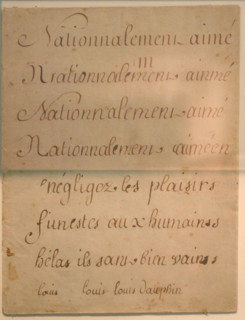 Nationnalement aimé
m
Nationnalement aimmé
Nationnalement aimé
Nationnalement aiméen
négligez les plaisirs
funestes aux humains
hélas ils sont bien vains
louis louis louis dauphin